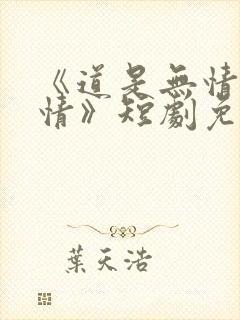 《道是無情
情》短劇免
葉天浩